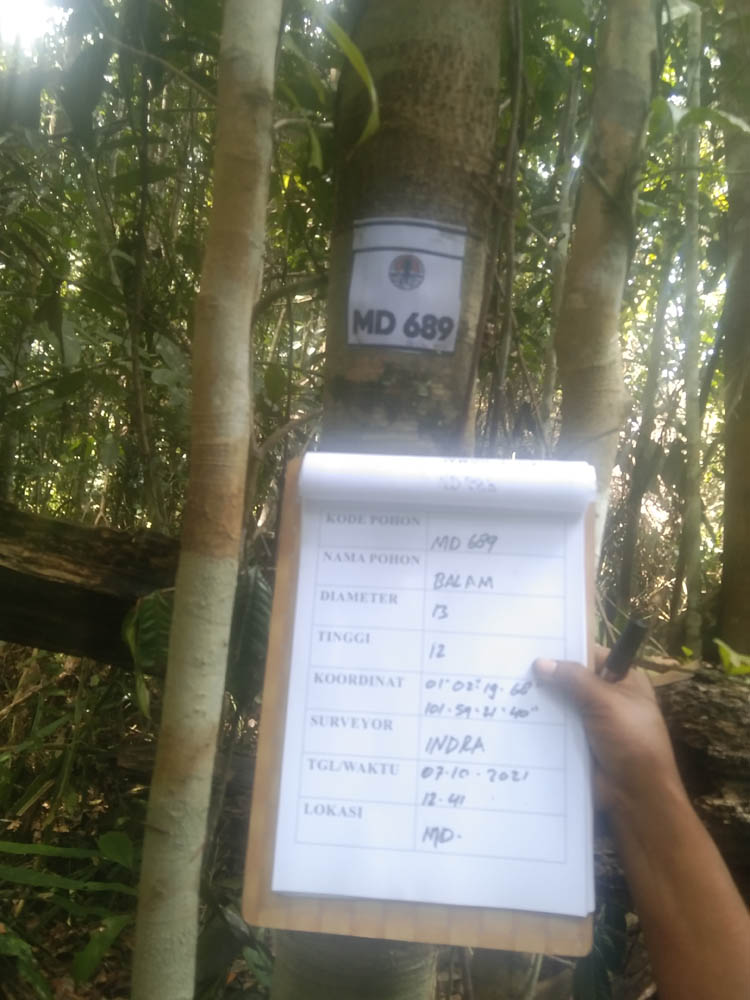 MD 689
KODE POHON MD 689
NAMA POHON BALAM
DIAMETER 13
TINGGI 12
KOORDINAT 01° 02' 19. 66"
101. 59. 21' 40"
SURVEYOR INDRA
TGL/WAKTU 07.10.2021
12.41
LOKASI MD.